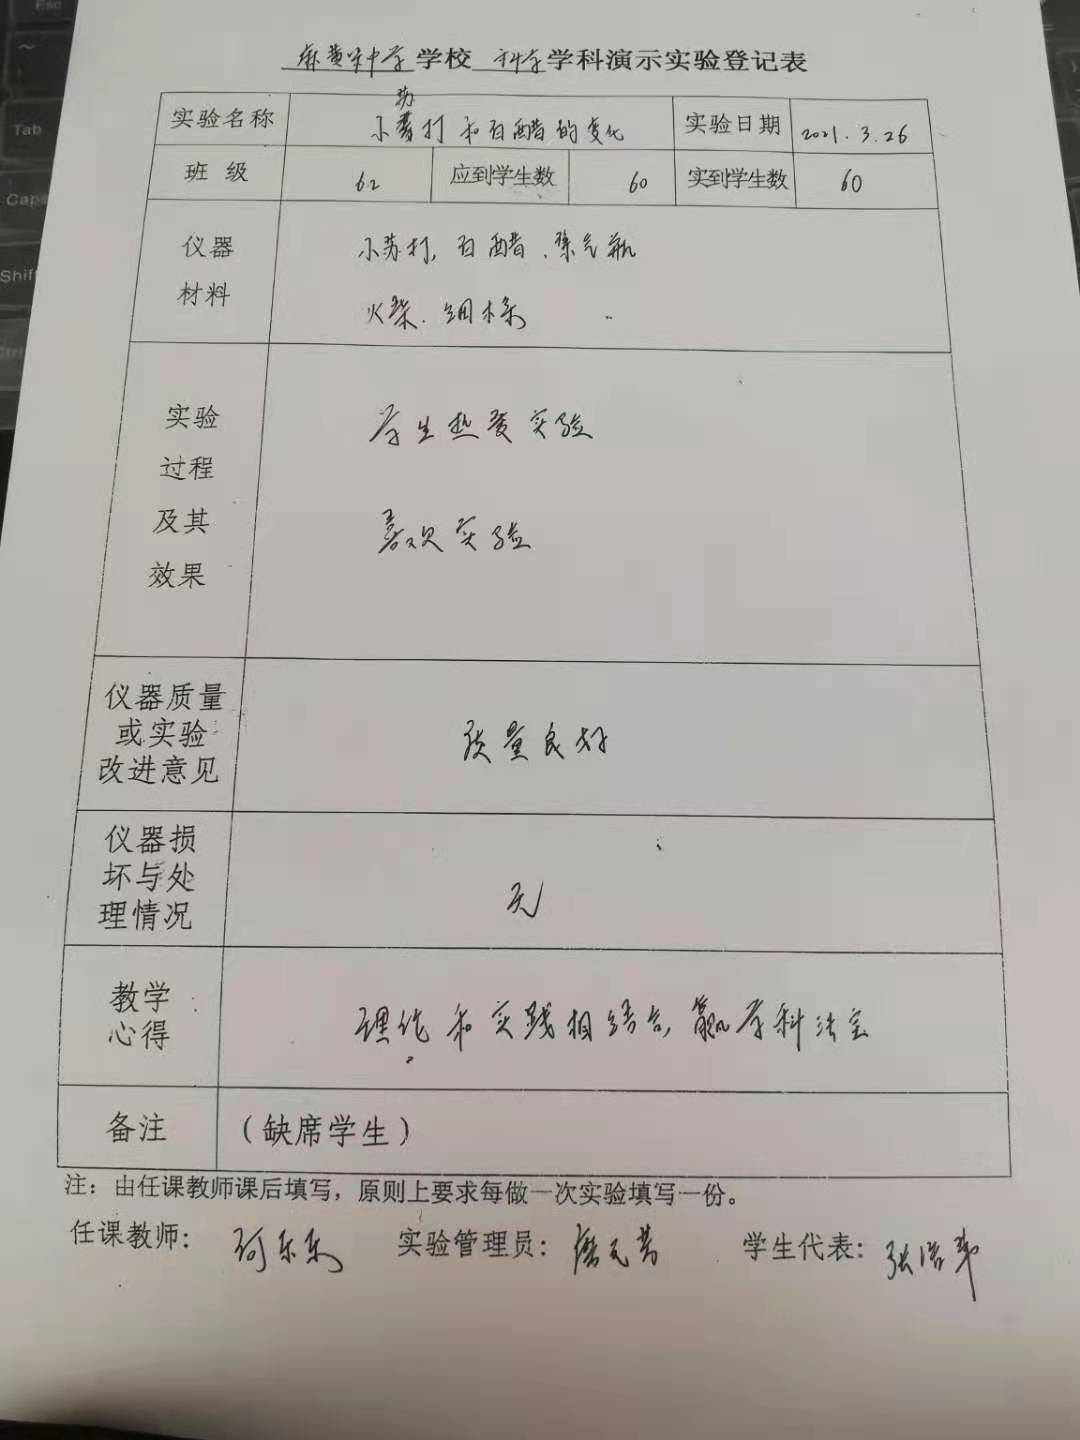 麻黄中学学校 科学学科演示实验登记表
实验名称 小苏打和白醋的变化 实验日期 2021.3.26
班级 62 应到学生数 60 实到学生数 60
仪器 小苏打、白醋、集气瓶
材料 火柴、细木条
实验 学生热爱实验
过程
及其 喜欢实验
效果
仪器质量
或实验 质量良好
改进意见
仪器损
坏与处 无
理情况
教学
心得 理论和实践相结合,赢学科法宝
备注 (缺席学生)
注:由任课教师课后填写,原则上要求每做一次实验填写一份。
任课教师: 实验管理员: 学生代表:
Esc
Tab
Caps
Shift
Ctrl